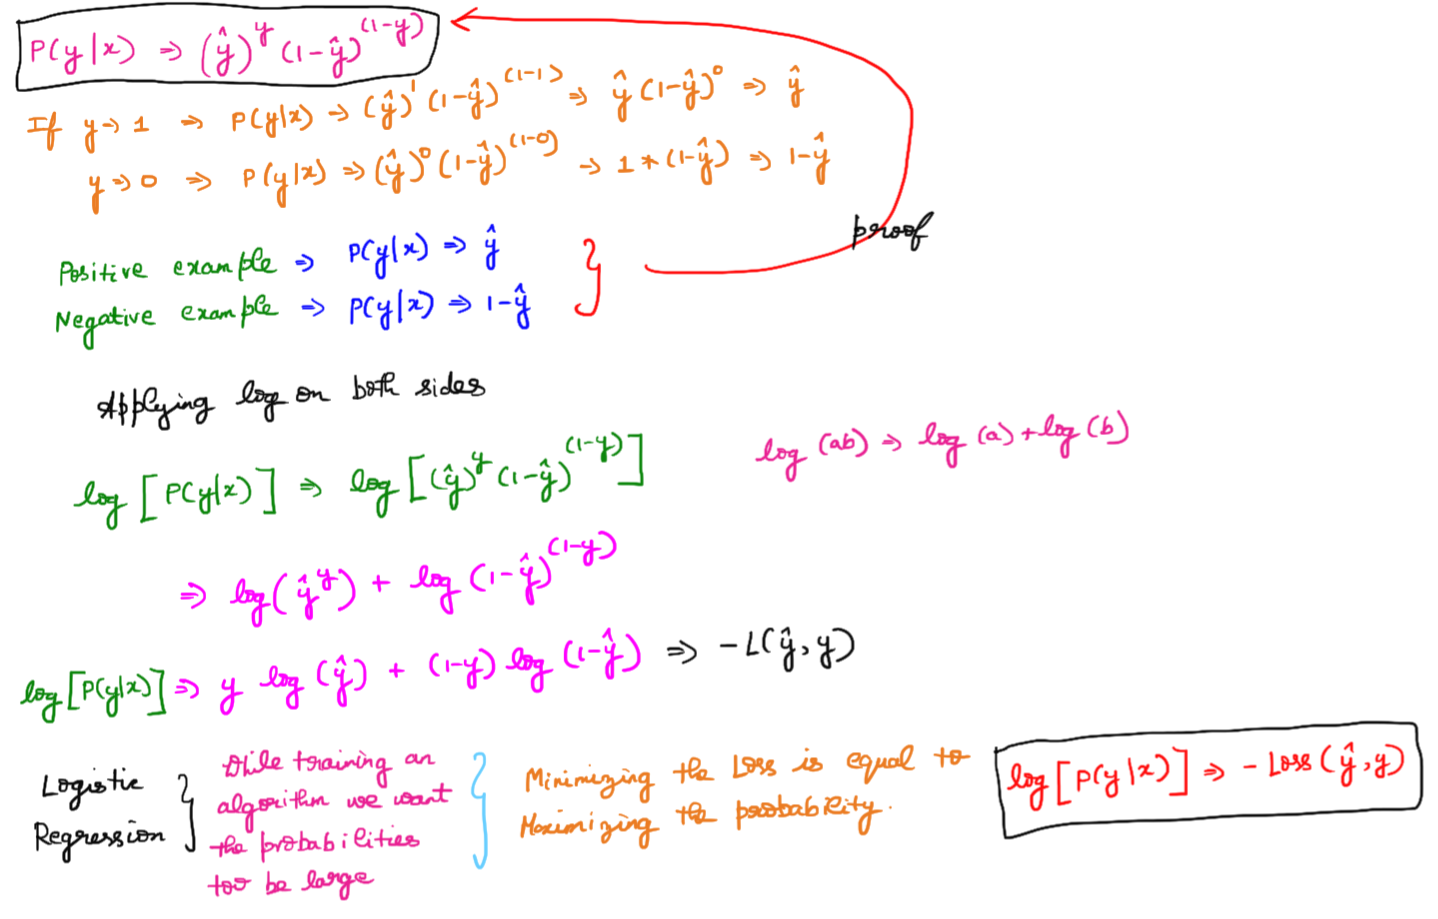 P(y|x) ⇒ (ŷ)^y (1-ŷ)^(1-y)
If y→1 ⇒ P(y|x) ⇒ (ŷ)^1 (1-ŷ)^(1-1) ⇒ ŷ (1-ŷ)^0 ⇒ ŷ
y⇒0 ⇒ P(y|x) ⇒ (ŷ)^0 (1-ŷ)^(1-0) → 1 * (1-ŷ) ⇒ 1-ŷ
proof
Positive example ⇒ P(y|x) ⇒ ŷ }
Negative example ⇒ P(y|x) ⇒ 1-ŷ
Applying log on both sides
log (ab) ⇒ log (a) + log (b)
log [P(y|x)] ⇒ log [(ŷ)^y (1-ŷ)^(1-y)]
⇒ log(ŷ^y) + log (1-ŷ)^(1-y)
log [P(y|x)] ⇒ y log (ŷ) + (1-y) log (1-ŷ) ⇒ -L(ŷ, y)
Logistic
Regression }
While training an
algorithm we want
the probabilities
too be large }
Minimizing the Loss is equal to
Maximizing the probability.
log [P(y|x)] ⇒ - Loss (ŷ, y)